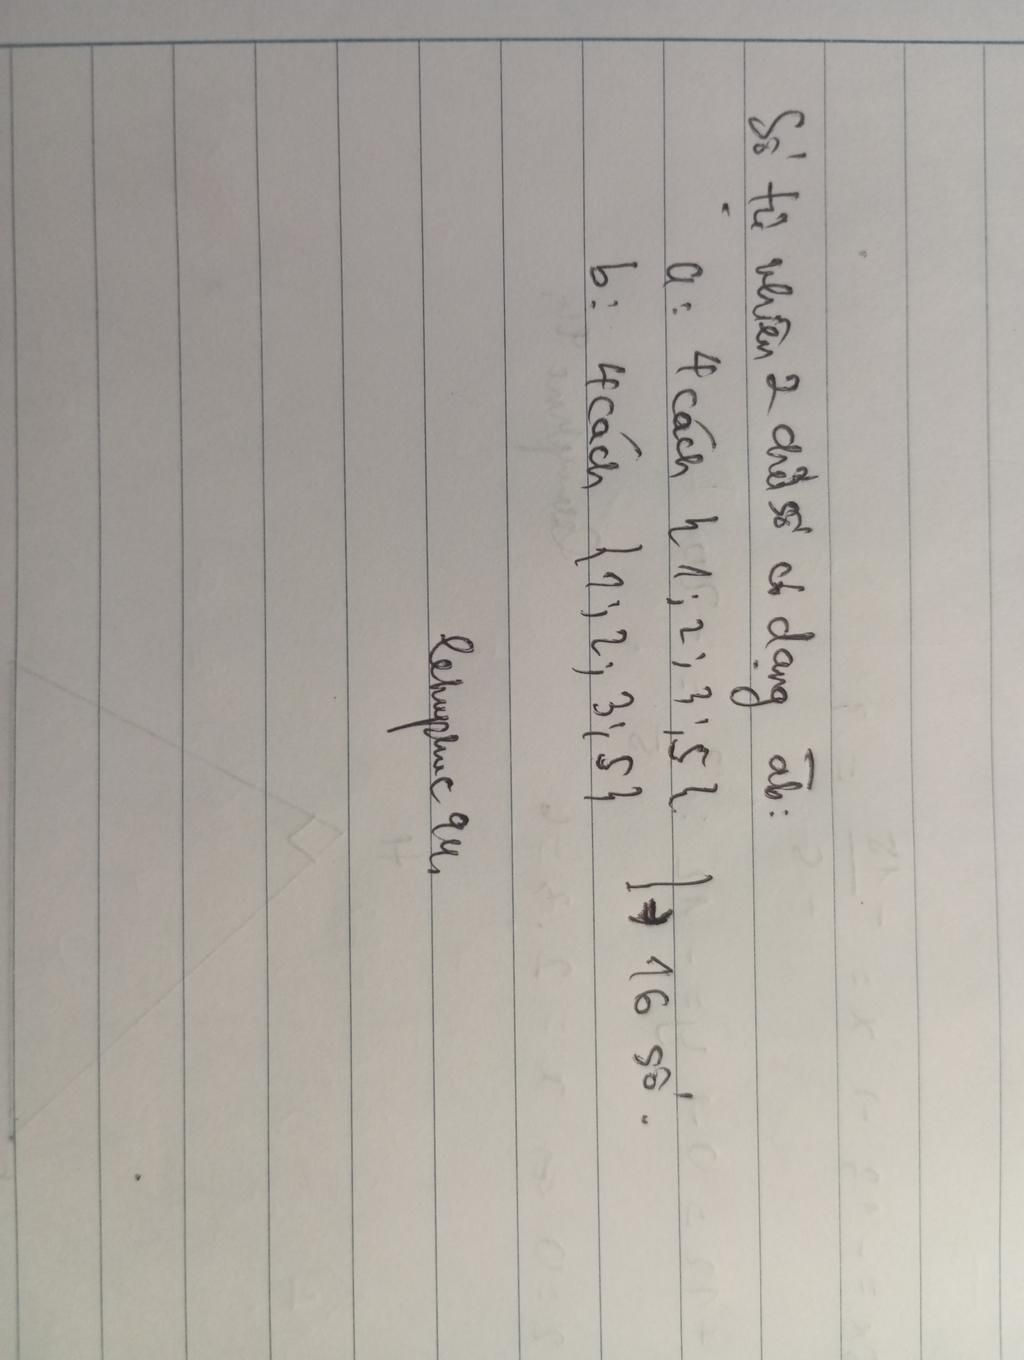 Số tự nhiên 2 chữ số có dạng ab:
a: 4 cách {1; 2; 3; 5}
b: 4 cách {1; 2; 3; 5}
} → 16 số.
lehuyphuc94,